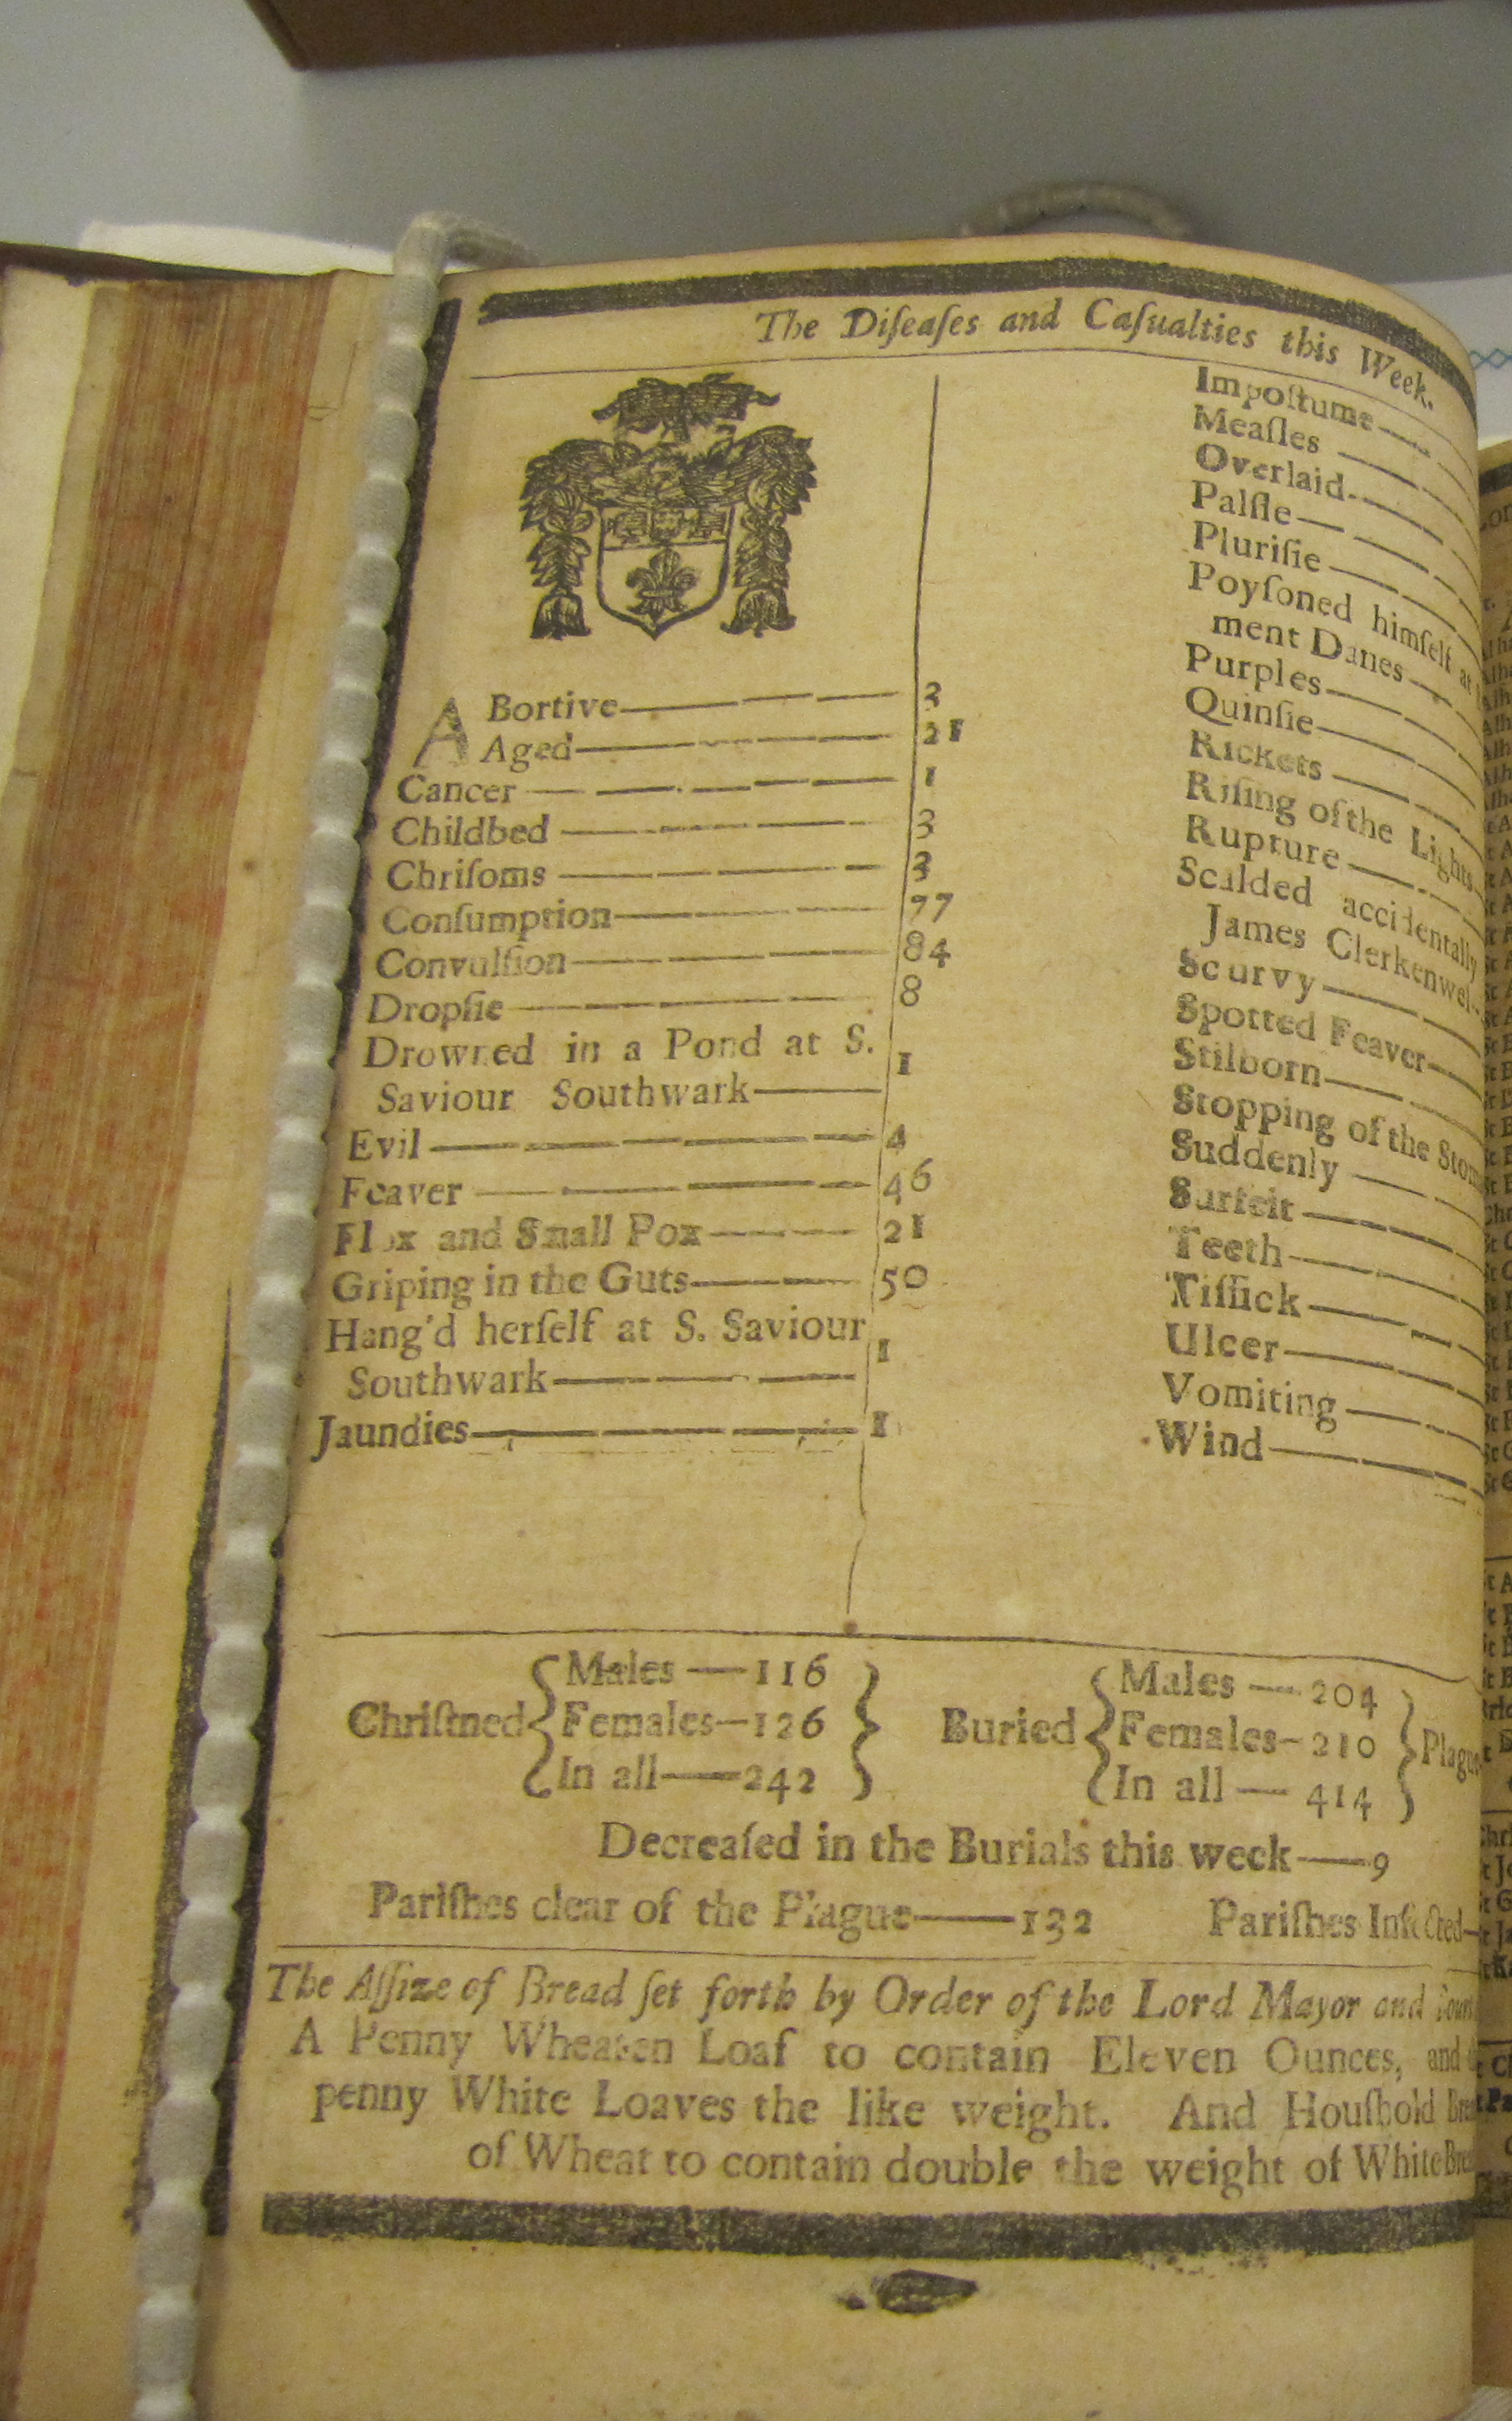 The Diſeaſes and Caſualties this Week.
ABortive 3
Aged 21
Cancer 1
Childbed 3
Chriſoms 3
Conſumption 77
Convulſion 84
Dropſie 8
Drowned in a Pond at S.
Saviour Southwark 1
Evil 4
Feaver 46
Flox and Small Pox 21
Griping in the Guts 50
Hang'd herſelf at S. Saviour
Southwark 1
Jaundies 1
Impoſtume
Meaſles
Overlaid
Palſie
Pluriſie
Poyſoned himſelf at
ment Danes
Purples
Quinſie
Rickets
Riſing of the Lights
Rupture
Scalded accidentally
James Clerkenwel
Scurvy
Spotted Feaver
Stilborn
Stopping of the Stom
Suddenly
Surfeit
Teeth
Tiſſick
Ulcer
Vomiting
Wind
Chriſtned { Males — 116
Females — 126
In all — 242 }
Buried { Males — 204
Females — 210
In all — 414 } Plague
Decreaſed in the Burials this week — 9
Pariſhes clear of the Plague — 132 Pariſhes Infected —
The Aſſize of Bread ſet forth by Order of the Lord Mayor and
A Penny Wheaten Loaf to contain Eleven Ounces, and
penny White Loaves the like weight. And Houſhold
of Wheat to contain double the weight of White